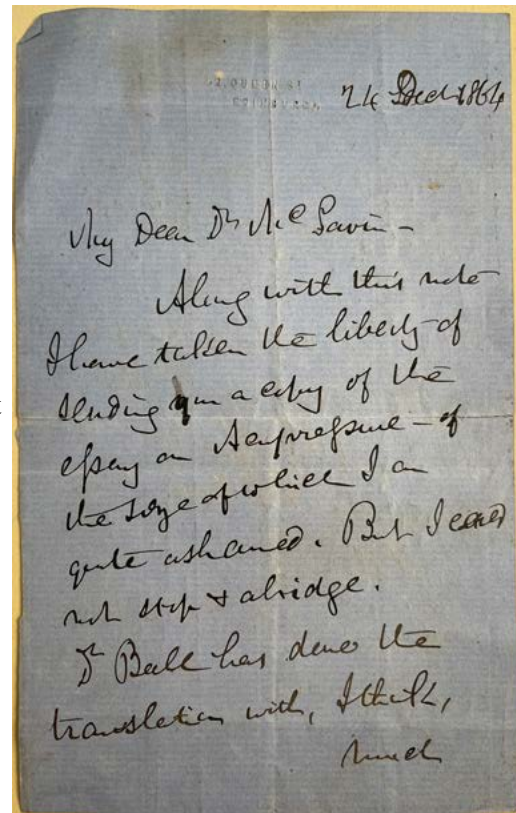 52, QUEEN ST
EDINBURGH.
24 Decr 1864
My Dear Dr McGavin -
Along with this note
I have taken the liberty of
sending you a copy of the
essay on Acupressure - of
the size of which I am
quite ashamed. But I could
not stop & abridge.
Dr Ball has done the
translation with, I think,
much